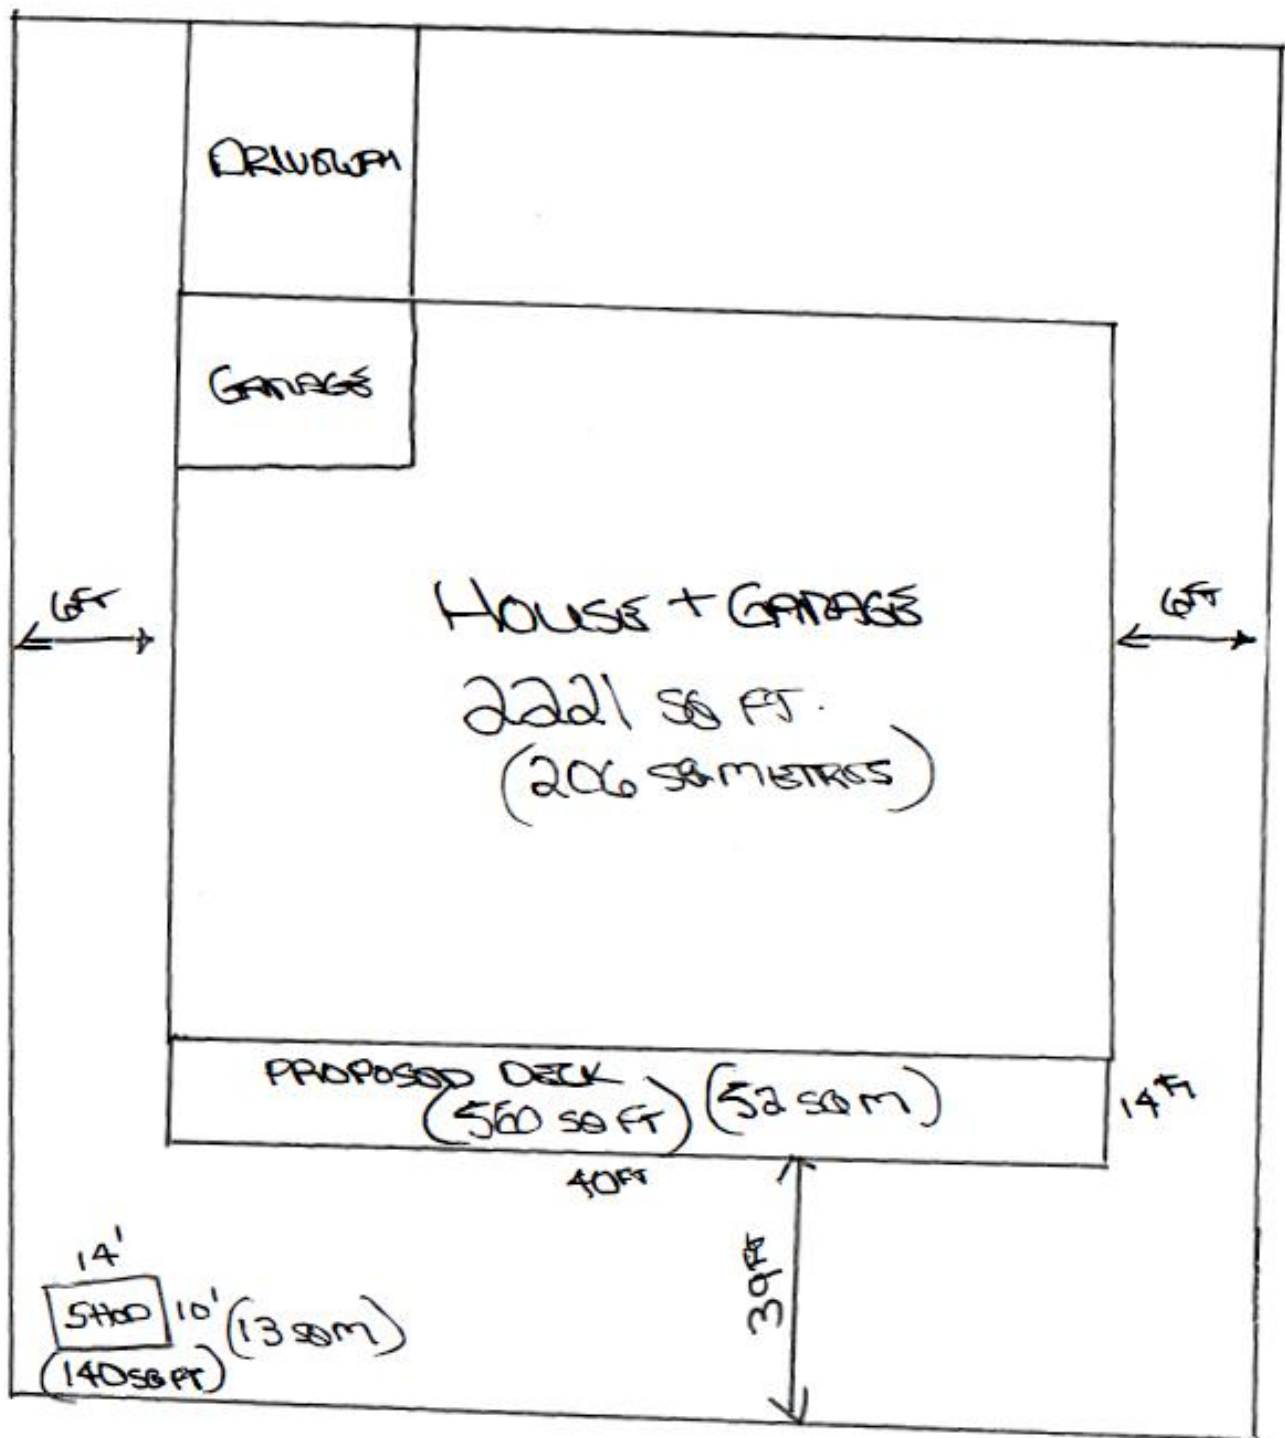 DRIVEWAY
GARAGE
6FT
6FT
HOUSE + GARAGE
2221 SQ FT.
(206 SQ METRES)
PROPOSED DECK
(560 SQ FT) (52 SQ M)
14 FT
40FT
39 FT
14'
SHED 10' (13 SQ M)
(140 SQ FT)